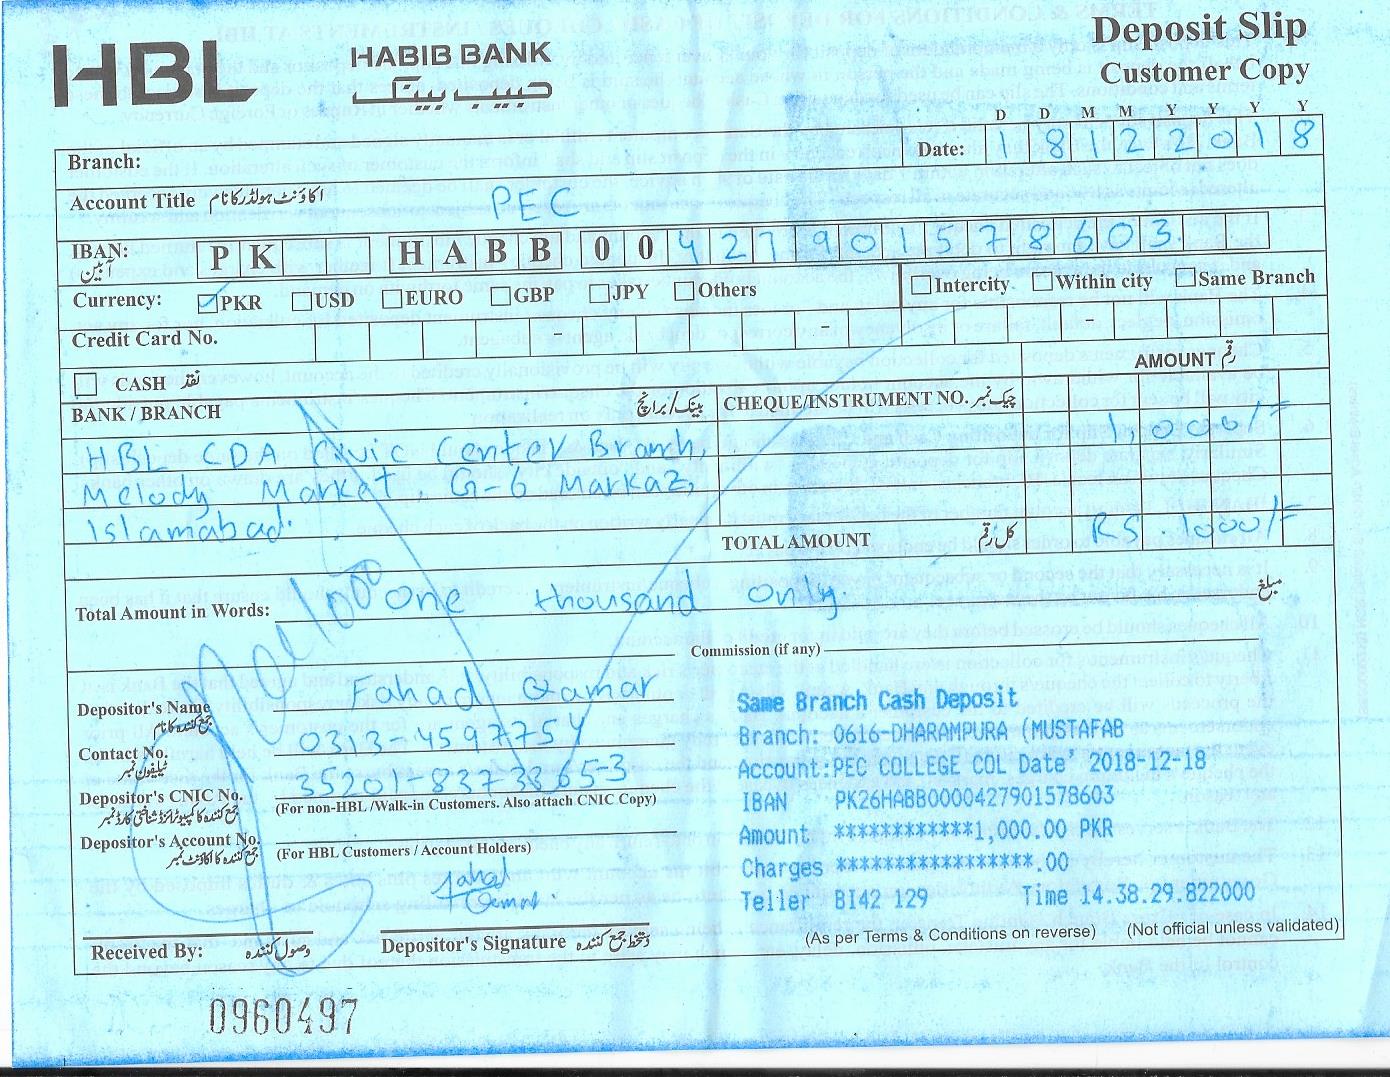 HBL HABIB BANK
حبیب بینک
Deposit Slip
Customer Copy
D D M M Y Y Y Y
Branch:
Date: 1 8 1 2 2 0 1 8
Account Title اکاؤنٹ ہولڈر کا نام PEC
IBAN: PK HABB 00427901578603
آئبین
Currency: PKR USD EURO GBP JPY Others
Intercity Within city Same Branch
Credit Card No. - - -
CASH نقد
AMOUNT رقم
BANK / BRANCH بینک/برانچ CHEQUE/INSTRUMENT NO. چیک نمبر
HBL CDA Civic Center Branch, 1,000/=
Melody Market, G-6 Markaz,
Islamabad.
TOTAL AMOUNT کل رقم RS. 1000/=
Total Amount in Words: One thousand only. مبلغ
Commission (if any)
Depositor's Name Fahad Qamar
جمع کنندہ کا نام
Contact No. 0313-4597754
ٹیلیفون نمبر
Depositor's CNIC No. 35201-8373865-3
جمع کنندہ کا کمپیوٹرائزڈ شناختی کارڈ نمبر
(For non-HBL /Walk-in Customers. Also attach CNIC Copy)
Depositor's Account No.
جمع کنندہ کا اکاؤنٹ نمبر
(For HBL Customers / Account Holders)
Same Branch Cash Deposit
Branch: 0616-DHARAMPURA (MUSTAFAB
Account:PEC COLLEGE COL Date' 2018-12-18
IBAN PK26HABB0000427901578603
Amount ************1,000.00 PKR
Charges *****************.00
Teller BI42 129 Time 14.38.29.822000
Fahad
Qamar
Received By: وصول کنندہ
Depositor's Signature دستخط جمع کنندہ
(As per Terms & Conditions on reverse) (Not official unless validated)
0960497